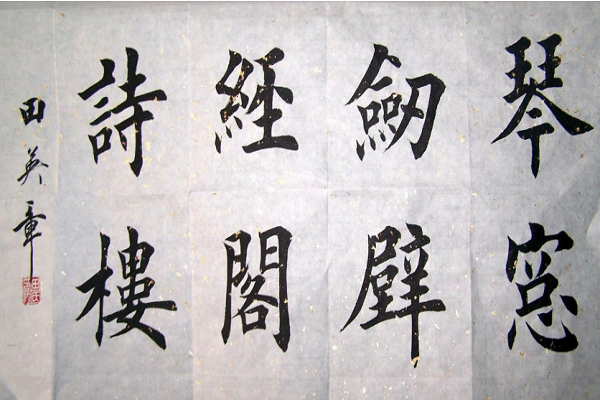 琴窓
劒壁
經閣
詩樓
田英章